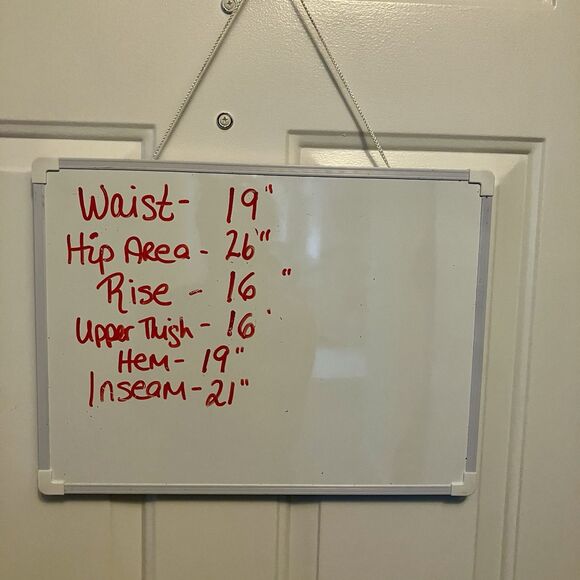 Waist- 19"
Hip Area - 26"
Rise - 16"
Upper Thigh - 16"
Hem- 19"
Inseam- 21"